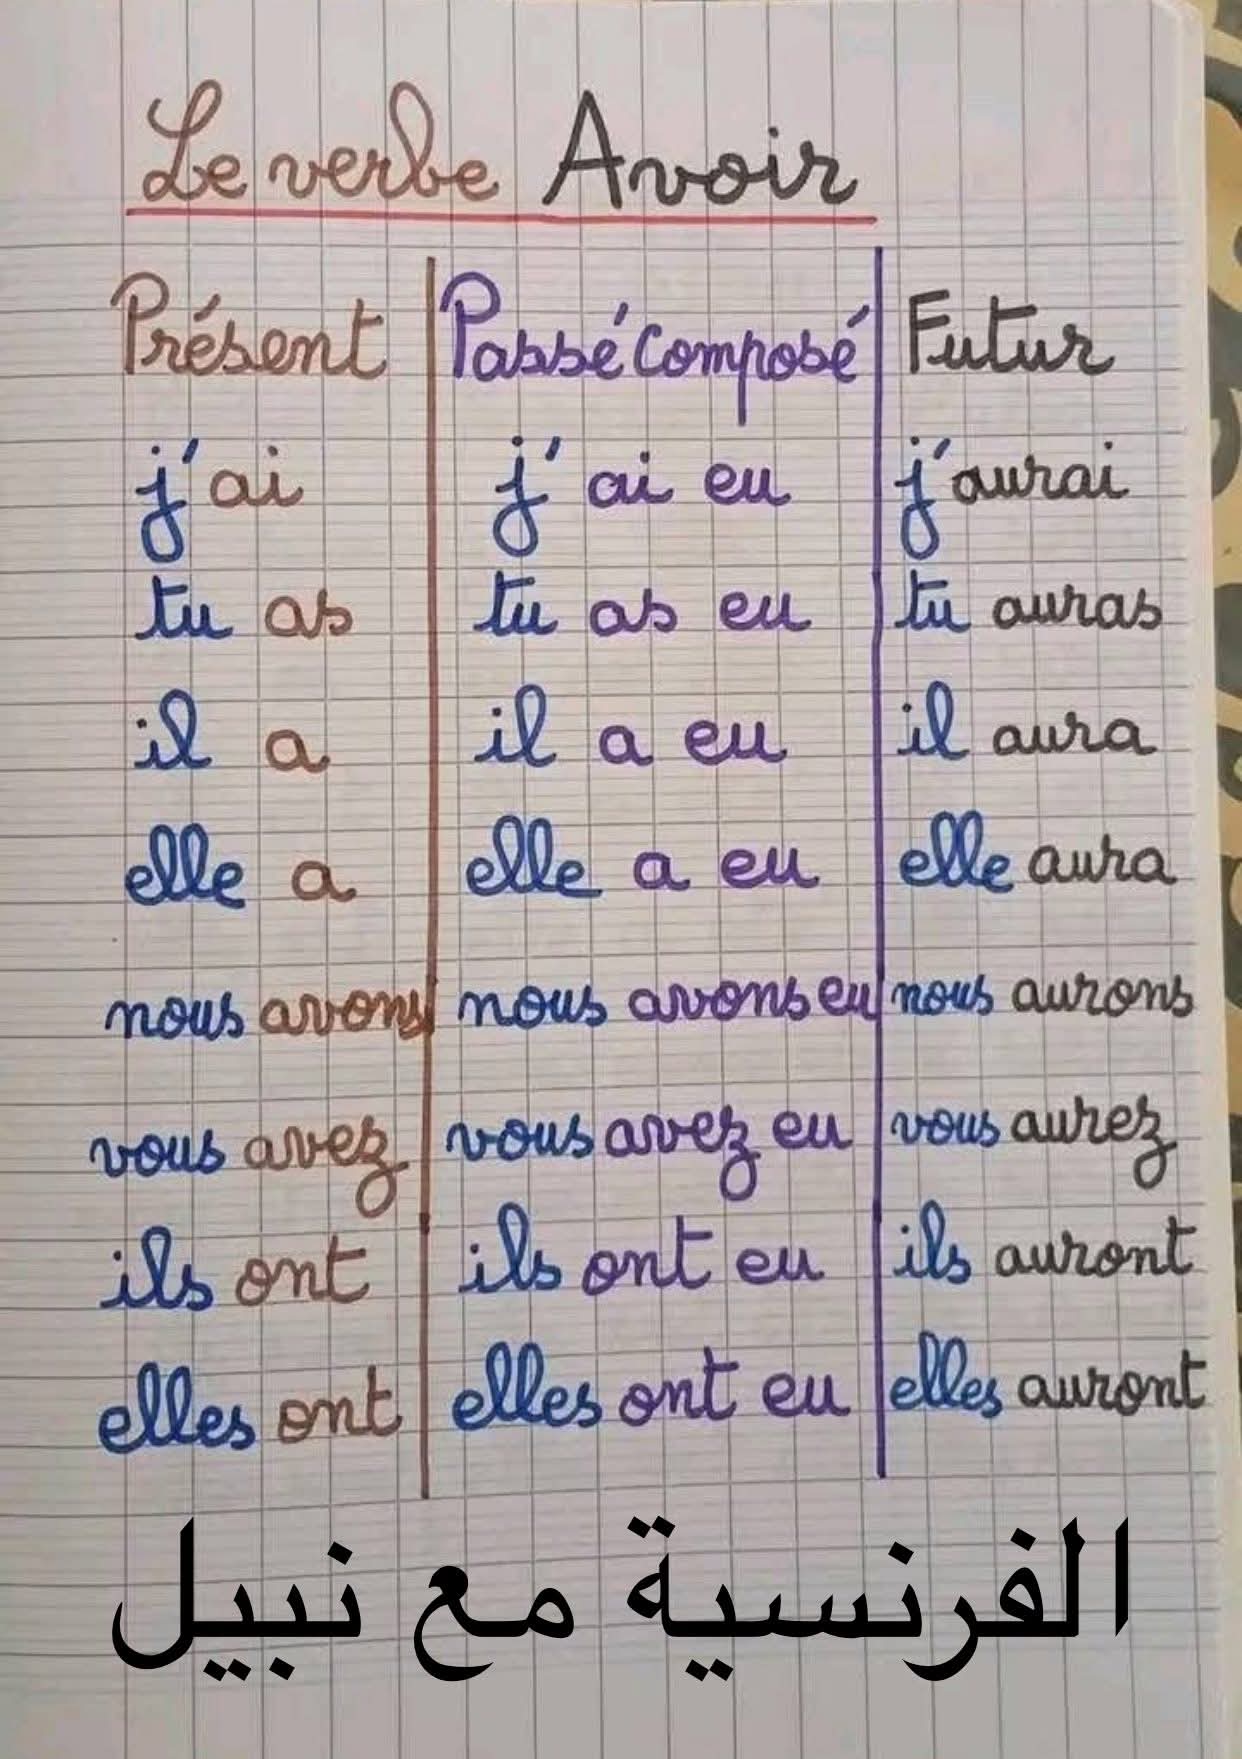 Le verbe Avoir
Présent Passé Composé Futur
j'ai j'ai eu j'aurai
tu as tu as eu tu auras
il a il a eu il aura
elle a elle a eu elle aura
nous avons nous avons eu nous aurons
vous avez vous avez eu vous aurez
ils ont ils ont eu ils auront
elles ont elles ont eu elles auront
الفرنسية مع نبيل